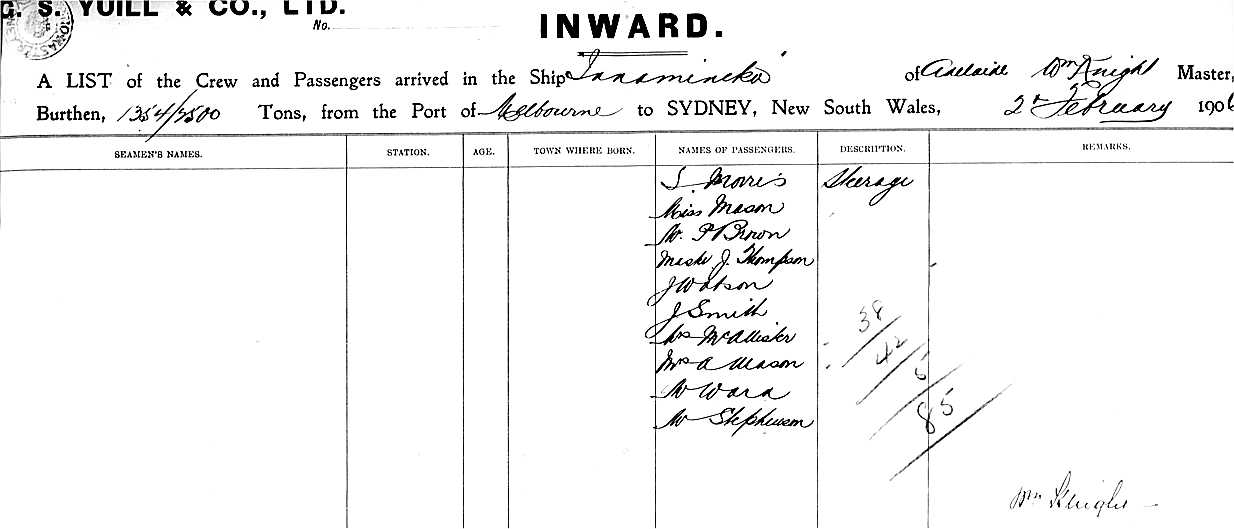 G. S. YUILL & CO., LTD.
No.
INWARD.
A LIST of the Crew and Passengers arrived in the Ship Innamincka of Adelaide Wm Knight Master,
Burthen, 1354/2500 Tons, from the Port of Melbourne to SYDNEY, New South Wales, 2d February 1906
SEAMEN'S NAMES. STATION. AGE. TOWN WHERE BORN. NAMES OF PASSENGERS. DESCRIPTION. REMARKS.
S. Morris Steerage
Miss Mason
W. P Brown
J. Thompson
J Watson
J Smith
Mrs McAllister
Mrs A Mason
W Ward
W Stephenson
38
42
5
85
Wm Knight